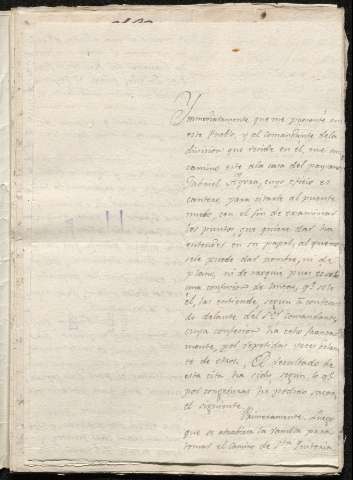 Ymmediatamente que me presenté en
este Pueblo, y al comandante dela
division que reside en el, me en
camino este ala casa del paysano
Gabriel cuyo oficio es
cantero, para citarle al puente
nuevo, con el fin de examinar
los puntos que quiere dar ha
entender en su papel, al que no
sele puede dar nombre, ni de
plano, ni de rasguño pues es
una confusion de lineas, qe. solo
el, las entiende, segun á confesa
do delante del Sor. Comandante,
cuya confesion ha echo
mente, por repetidas veces delan
te de otros. El resultado de
esta cita ha sido segun lo qe.
por congeturas he podido sacar,
el siguiente.
Primeramente. Luego
que se atraviesa la rambla para
tomar el camino de Sta.